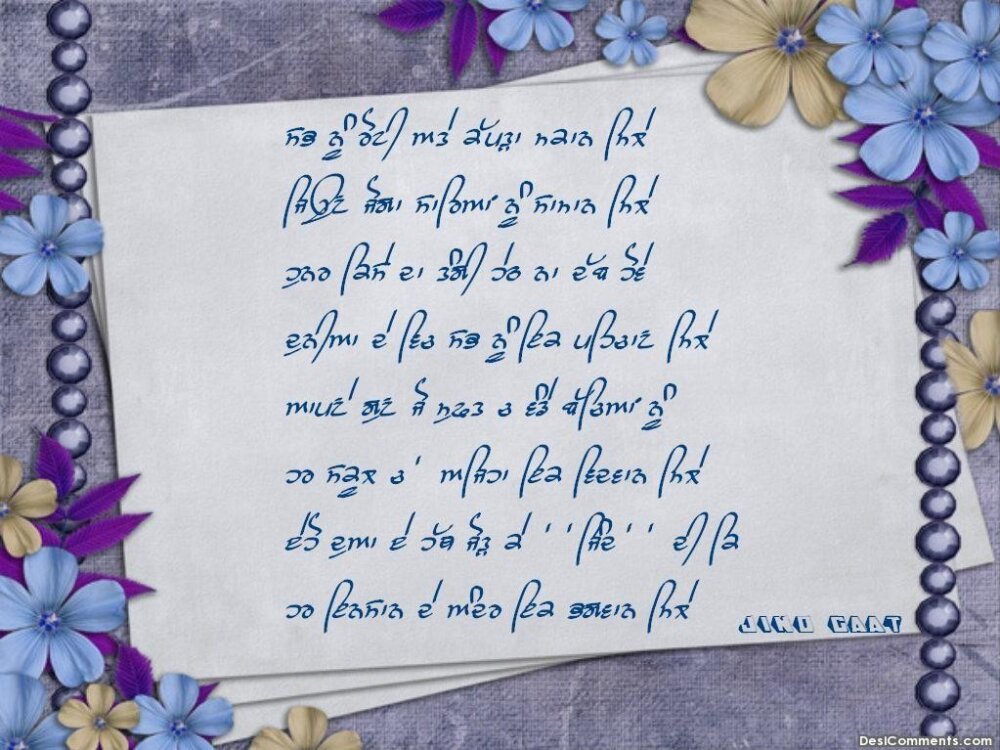 ਸਭ ਨੂੰ ਰੋਟੀ ਅਤੇ ਕੱਪੜਾ ਮਕਾਨ ਮਿਲੇ
ਜਿਊਣ ਜੋਗਾ ਸਾਰਿਆਂ ਨੂੰ ਸਾਮਾਨ ਮਿਲੇ
ਹੁਨਰ ਕਿਸੇ ਦਾ ਤੰਗੀ ਹੇਠ ਨਾ ਦੱਬ ਹੋਵੇ
ਦੁਨੀਆ ਦੇ ਵਿਚ ਸਭ ਨੂੰ ਇਕ ਪਹਿਚਾਣ ਮਿਲੇ
ਆਪਣੇ ਗੁਣ ਜੋ ਮੁਫਤ ਚ ਵੰਡੇ ਬੱਚਿਆਂ ਨੂੰ
ਹਰ ਸਕੂਲ ਚ' ਅਜਿਹਾ ਇਕ ਵਿਦਵਾਨ ਮਿਲੇ
ਏਹੋ ਦੁਆ ਏ ਹੱਥ ਜੋੜ ਕੇ ''ਜਿੰਦ'' ਦੀ ਕਿ
ਹਰ ਇਨਸਾਨ ਦੇ ਅੰਦਰ ਇਕ ਭਗਵਾਨ ਮਿਲੇ
JIND GAAT
DesiComments.com